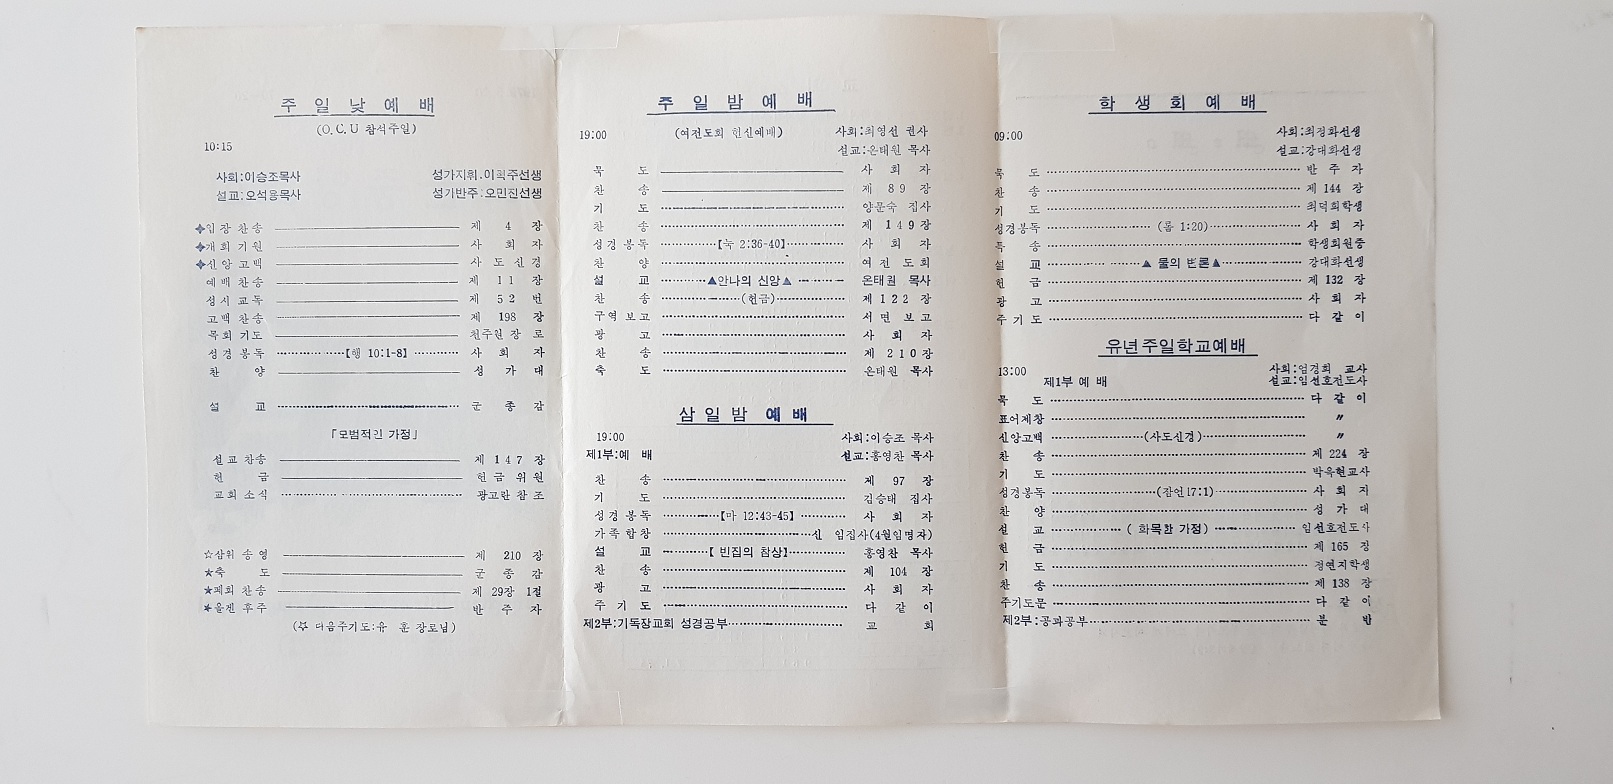 주 일 낮 예 배
(O.C.U 참석주일)
10:15
사회:이승조목사 성가지휘:이혁주선생
설교:오석용목사 성가반주:오민진선생
입 장 찬 송 제 4 장
개 회 기 원 사 회 자
신 앙 고 백 사 도 신 경
예 배 찬 송 제 1 1 장
성 시 교 독 제 5 2 번
고 백 찬 송 제 198 장
목 회 기 도 천주원 장 로
성 경 봉 독 【행 10:1-8】 사 회 자
찬 양 성 가 대
설 교 군 종 감
「모범적인 가정」
설 교 찬 송 제 1 4 7 장
헌 금 헌 금 위 원
교 회 소 식 광고란 참 조
☆삼위 송 영 제 210 장
★축 도 군 종 감
★폐회 찬 송 제 29장 1절
★올겐 후 주 반 주 자
(☆ 다음주기도:유 훈 장로님)
주 일 밤 예 배
19:00 (여전도회 헌신예배) 사회:최영선 권사
설교:온태원 목사
묵 도 사 회 자
찬 송 제 8 9 장
기 도 양문숙 집사
찬 송 제 1 4 9 장
성경 봉독 【눅 2:36-40】 사 회 자
찬 양 여 전 도 회
설 교 ▲안나의 신앙▲ 온태원 목사
찬 송 (헌금) 제 1 2 2 장
구 역 보 고 서 면 보 고
광 고 사 회 자
찬 송 제 2 1 0 장
축 도 온태원 목사
삼 일 밤 예 배
19:00 사회:이승조 목사
제1부:예 배 설교:홍영찬 목사
찬 송 제 97 장
기 도 김승태 집사
성경 봉독 【마 12:43-45】 사 회 자
가 족 합 창 신 임집사(4월임명자)
설 교 【 빈집의 참상】 홍영찬 목사
찬 송 제 104 장
광 고 사 회 자
주 기 도 다 같 이
제2부:기독장교회 성경공부 교 회
학 생 회 예 배
09:00 사회:최정화선생
설교:강대화선생
묵 도 반 주 자
찬 송 제 144 장
기 도 최덕희학생
성경봉독 (롬 1:20) 사 회 자
특 송 학생회원중
설 교 ▲ 물의 변론▲ 강대화선생
헌 금 제 132 장
광 고 사 회 자
주 기 도 다 같 이
유년주일학교예배
13:00 사회:엄경희 교사
제1부 예 배 설교:임선호전도사
묵 도 다 같 이
표어제창 〃
신앙고백 (사도신경) 〃
찬 송 제 224 장
기 도 박육현교사
성경봉독 (잠언17:1) 사 회 자
찬 양 성 가 대
설 교 ( 화목한 가정) 임선호전도사
헌 금 제 165 장
기 도 정연지학생
찬 송 제 138 장
주기도문 다 같 이
제2부:공과공부 분 반